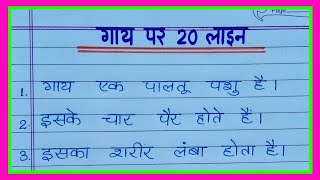 गाय पर 20 लाइन
1. गाय एक पालतू पशु है।
2. इसके चार पैर होते हैं।
3. इसका शरीर लंबा होता है।